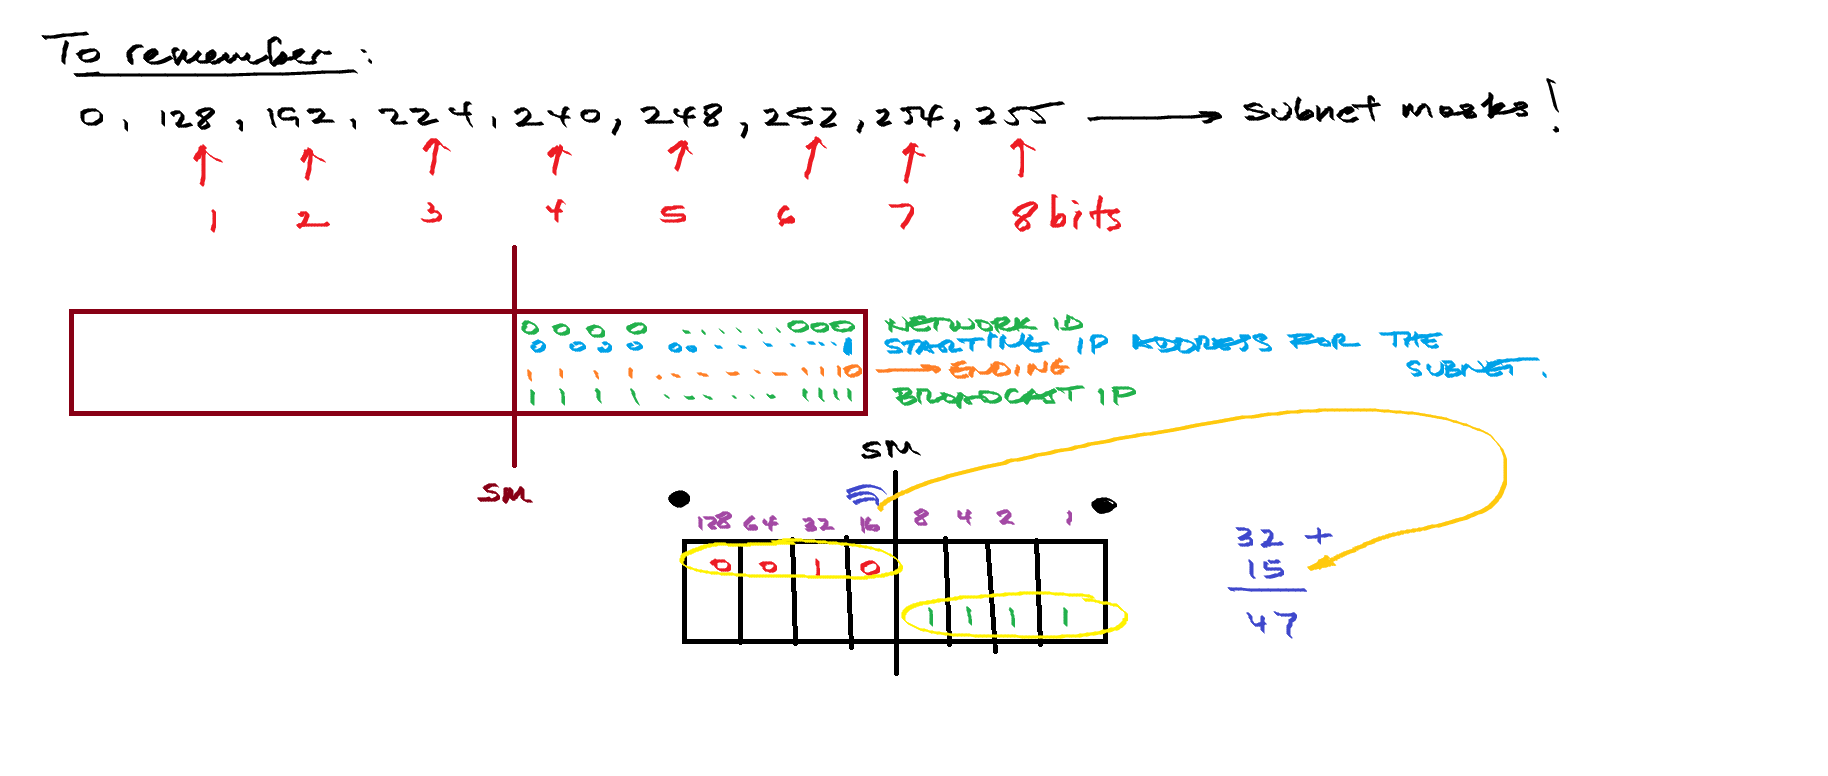 To remember:
0, 128, 192, 224, 240, 248, 252, 254, 255 → subnet masks!
1 2 3 4 5 6 7 8 bits
0 0 0 0 ........ 000 NETWORK ID
0 0 0 0 00.......1 STARTING IP ADDRESS FOR THE
SUBNET.
1 1 1 1 ........ 1110 → ENDING
1 1 1 1 ........ 1111 BROADCAST IP
SM
SM
128 64 32 16 8 4 2 1
0 0 1 0
1 1 1 1
32 +
15
47